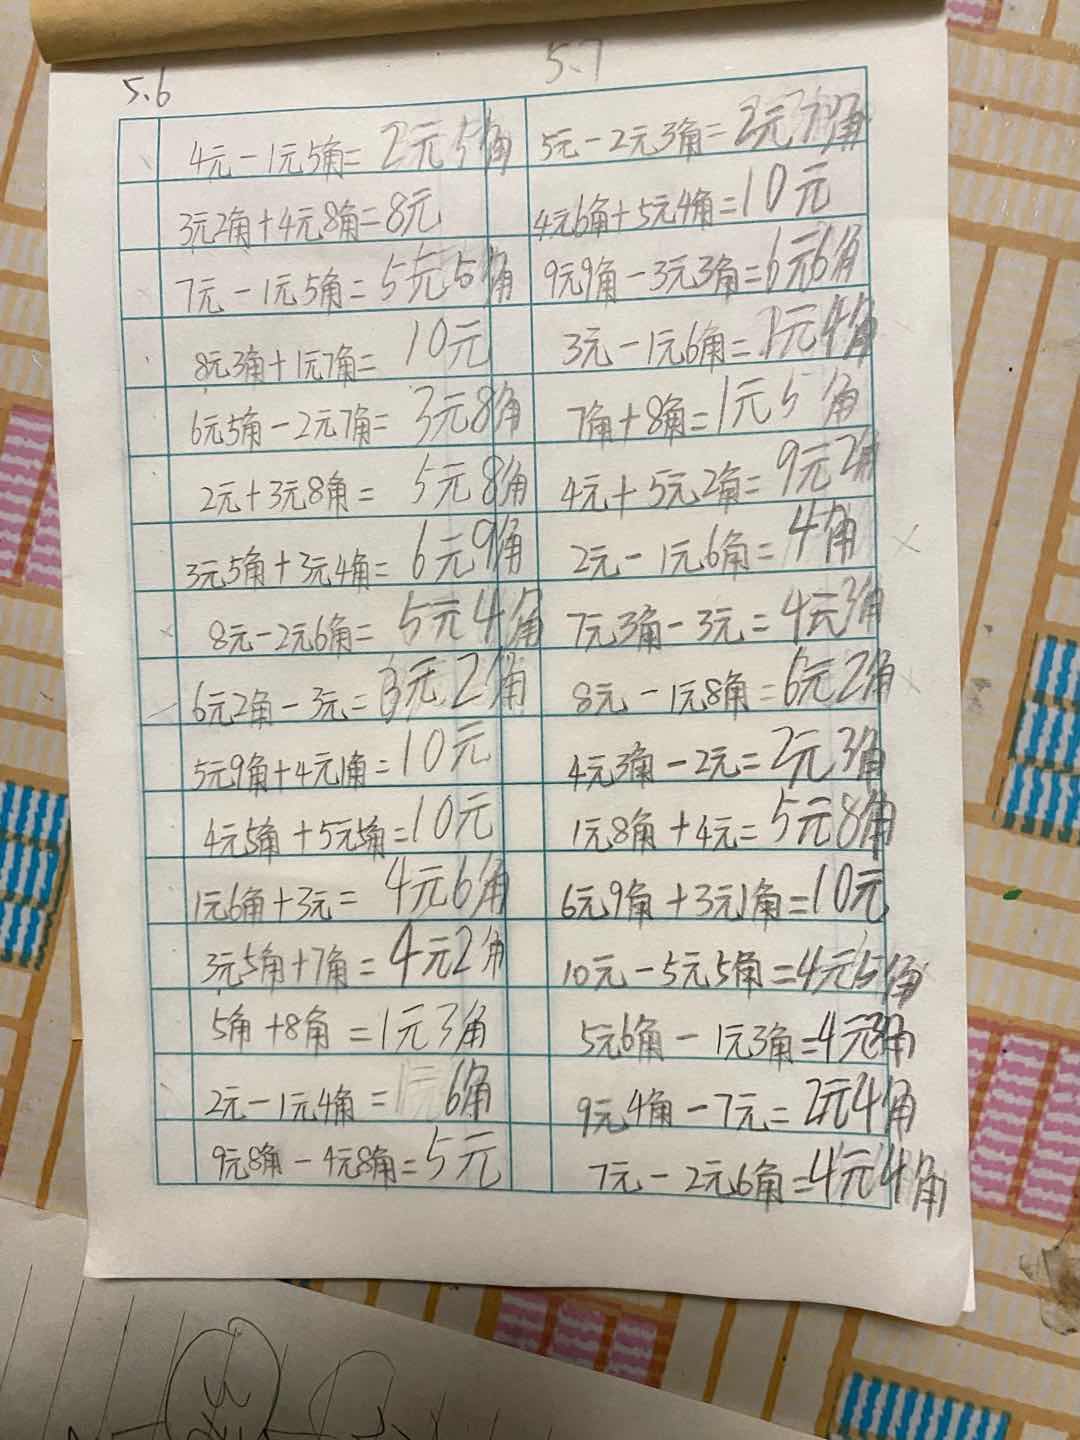 5.6
4元-1元5角=2元5角
3元2角+4元8角=8元
7元-1元5角=5元5角
8元3角+1元7角=10元
6元5角-2元7角=3元8角
2元+3元8角=5元8角
3元5角+3元4角=6元9角
8元-2元6角=5元4角
6元2角-3元=3元2角
5元9角+4元1角=10元
4元5角+5元5角=10元
1元6角+3元=4元6角
3元5角+7角=4元2角
5角+8角=1元3角
2元-1元4角=6角
9元8角-4元8角=5元
5.7
5元-2元3角=2元7角
4元6角+5元4角=10元
9元9角-3元3角=6元6角
3元-1元6角=1元4角
7角+8角=1元5角
4元+5元2角=9元2角
2元-1元6角=4角
7元3角-3元=4元3角
8元-1元8角=6元2角
4元3角-2元=2元3角
1元8角+4元=5元8角
6元9角+3元1角=10元
10元-5元5角=4元5角
5元6角-1元3角=4元3角
9元4角-7元=2元4角
7元-2元6角=4元4角